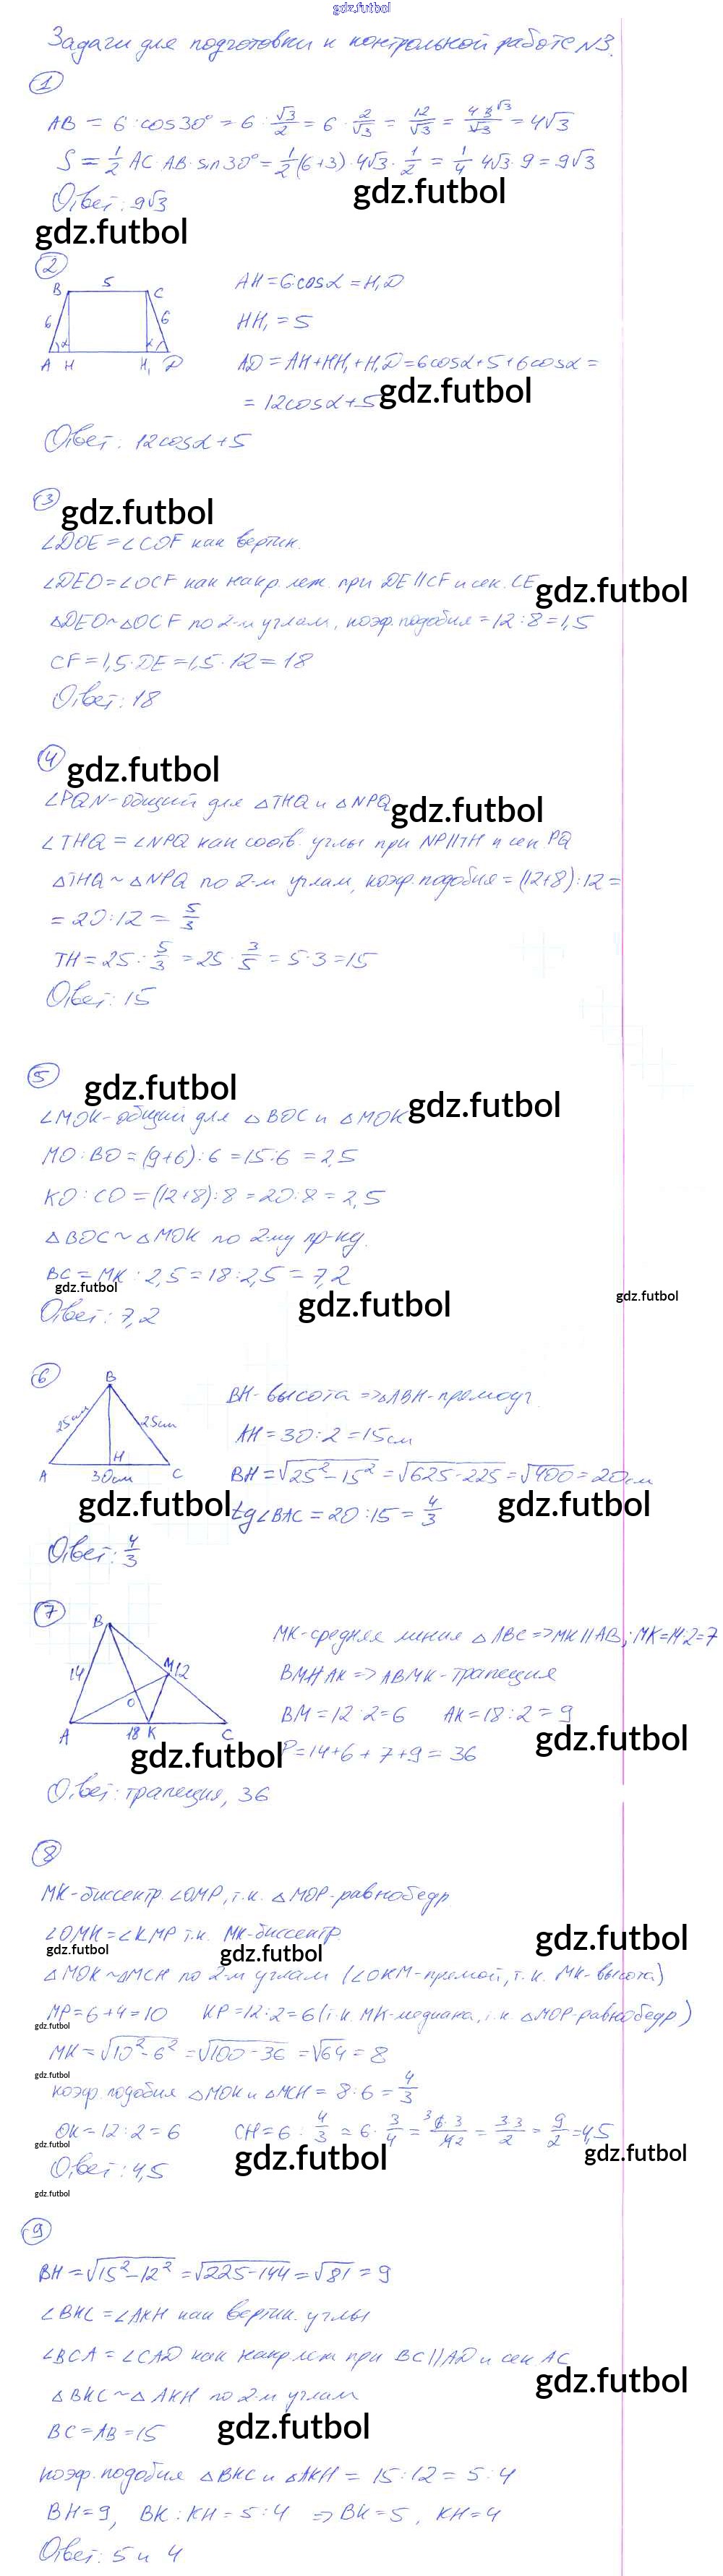 gdz.futbol
Задачи для подготовки к контрольной работе N3.
1
AB = 6 : cos30° = 6 : √3/2 = 6 · 2/√3 = 12/√3 = 4·3 √3/√3 = 4√3
S = 1/2 AC·AB·sin30° = 1/2(6+3)·4√3·1/2 = 1/4 4√3·9 = 9√3
Ответ: 9√3
gdz.futbol
gdz.futbol
2
B 5 C
6 6
α α
A H H₁ D
AH = 6·cosα = H₁D
HH₁ = 5
AD = AH+HH₁+H₁D = 6cosα+5+6cosα =
= 12cosα+5
gdz.futbol
Ответ: 12cosα+5
3
gdz.futbol
∠DOE = ∠COF как вертик.
∠DEO = ∠OCF как накр. леж. при DE∥CF и сек. CE
gdz.futbol
△DEO~△OCF по 2-м углам, коэф. подобия = 12:8 = 1,5
CF = 1,5·DE = 1,5·12 = 18
Ответ: 18
4
gdz.futbol
∠PQN - общий для △THQ и △NPQ
gdz.futbol
∠THQ = ∠NPQ как соотв. углы при NP∥TH и сек PQ
△THQ ~ △NPQ по 2-м углам, коэф. подобия = (12+8):12 =
= 20:12 = 5/3
TH = 25 : 5/3 = 25 · 3/5 = 5·3 = 15
Ответ: 15
5
gdz.futbol
∠MOK - общий для △BOC и △MOK
gdz.futbol
MO:BO = (9+6):6 = 15:6 = 2,5
KO:CO = (12+8):8 = 20:8 = 2,5
△BOC ~ △MOK по 2-му пр-ку.
BC = MK : 2,5 = 18:2,5 = 7,2
gdz.futbol
gdz.futbol
gdz.futbol
Ответ: 7,2
6
B
25см 25см
H
A 30см C
BH - высота => △ABH - прямоуг.
AH = 30:2 = 15см
BH = √25²-15² = √625-225 = √400 = 20см
gdz.futbol
tg∠BAC = 20:15 = 4/3
gdz.futbol
Ответ: 4/3
7
B
14 M 12
O
A 18 K C
MK - средняя линия △ABC => MK∥AB; MK=14:2=7
BM∦AK => ABMK - трапеция
BM = 12:2=6 AK = 18:2 = 9
gdz.futbol
P = 14+6+7+9 = 36
gdz.futbol
Ответ: трапеция, 36
8
MK - биссектр. ∠OMP, т.к. △MOP - равнобедр.
∠OMK = ∠KMP т.к. MK - биссектр.
gdz.futbol
gdz.futbol
gdz.futbol
△MOK ~ △MCH по 2-м углам (∠OKM - прямой, т.к. MK - высота)
MP = 6+4 = 10 KP = 12:2 = 6 (т.к. MK - медиана, т.к. △MOP - равнобедр)
gdz.futbol
MK = √10²-6² = √100-36 = √64 = 8
gdz.futbol
коэф. подобия △MOK и △MCH = 8:6 = 4/3
OK = 12:2 = 6 CH = 6 : 4/3 = 6 · 3/4 = ³6·3/42 = 3·3/2 = 9/2 = 4,5
gdz.futbol
gdz.futbol
gdz.futbol
Ответ: 4,5
gdz.futbol
9
BH = √15²-12² = √225-144 = √81 = 9
∠BKC = ∠AKH как вертик. углы
∠BCA = ∠CAD как накр леж при BC∥AD и сек AC
gdz.futbol
△BKC ~ △AKH по 2-м углам
BC = AB = 15
gdz.futbol
коэф. подобия △BKC и △AKH = 15:12 = 5:4
BH = 9, BK:KH = 5:4 => BK = 5, KH = 4
Ответ: 5 и 4